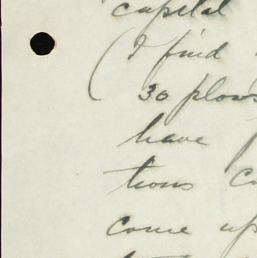 capital
(I find
30 plows
have
tions
come up